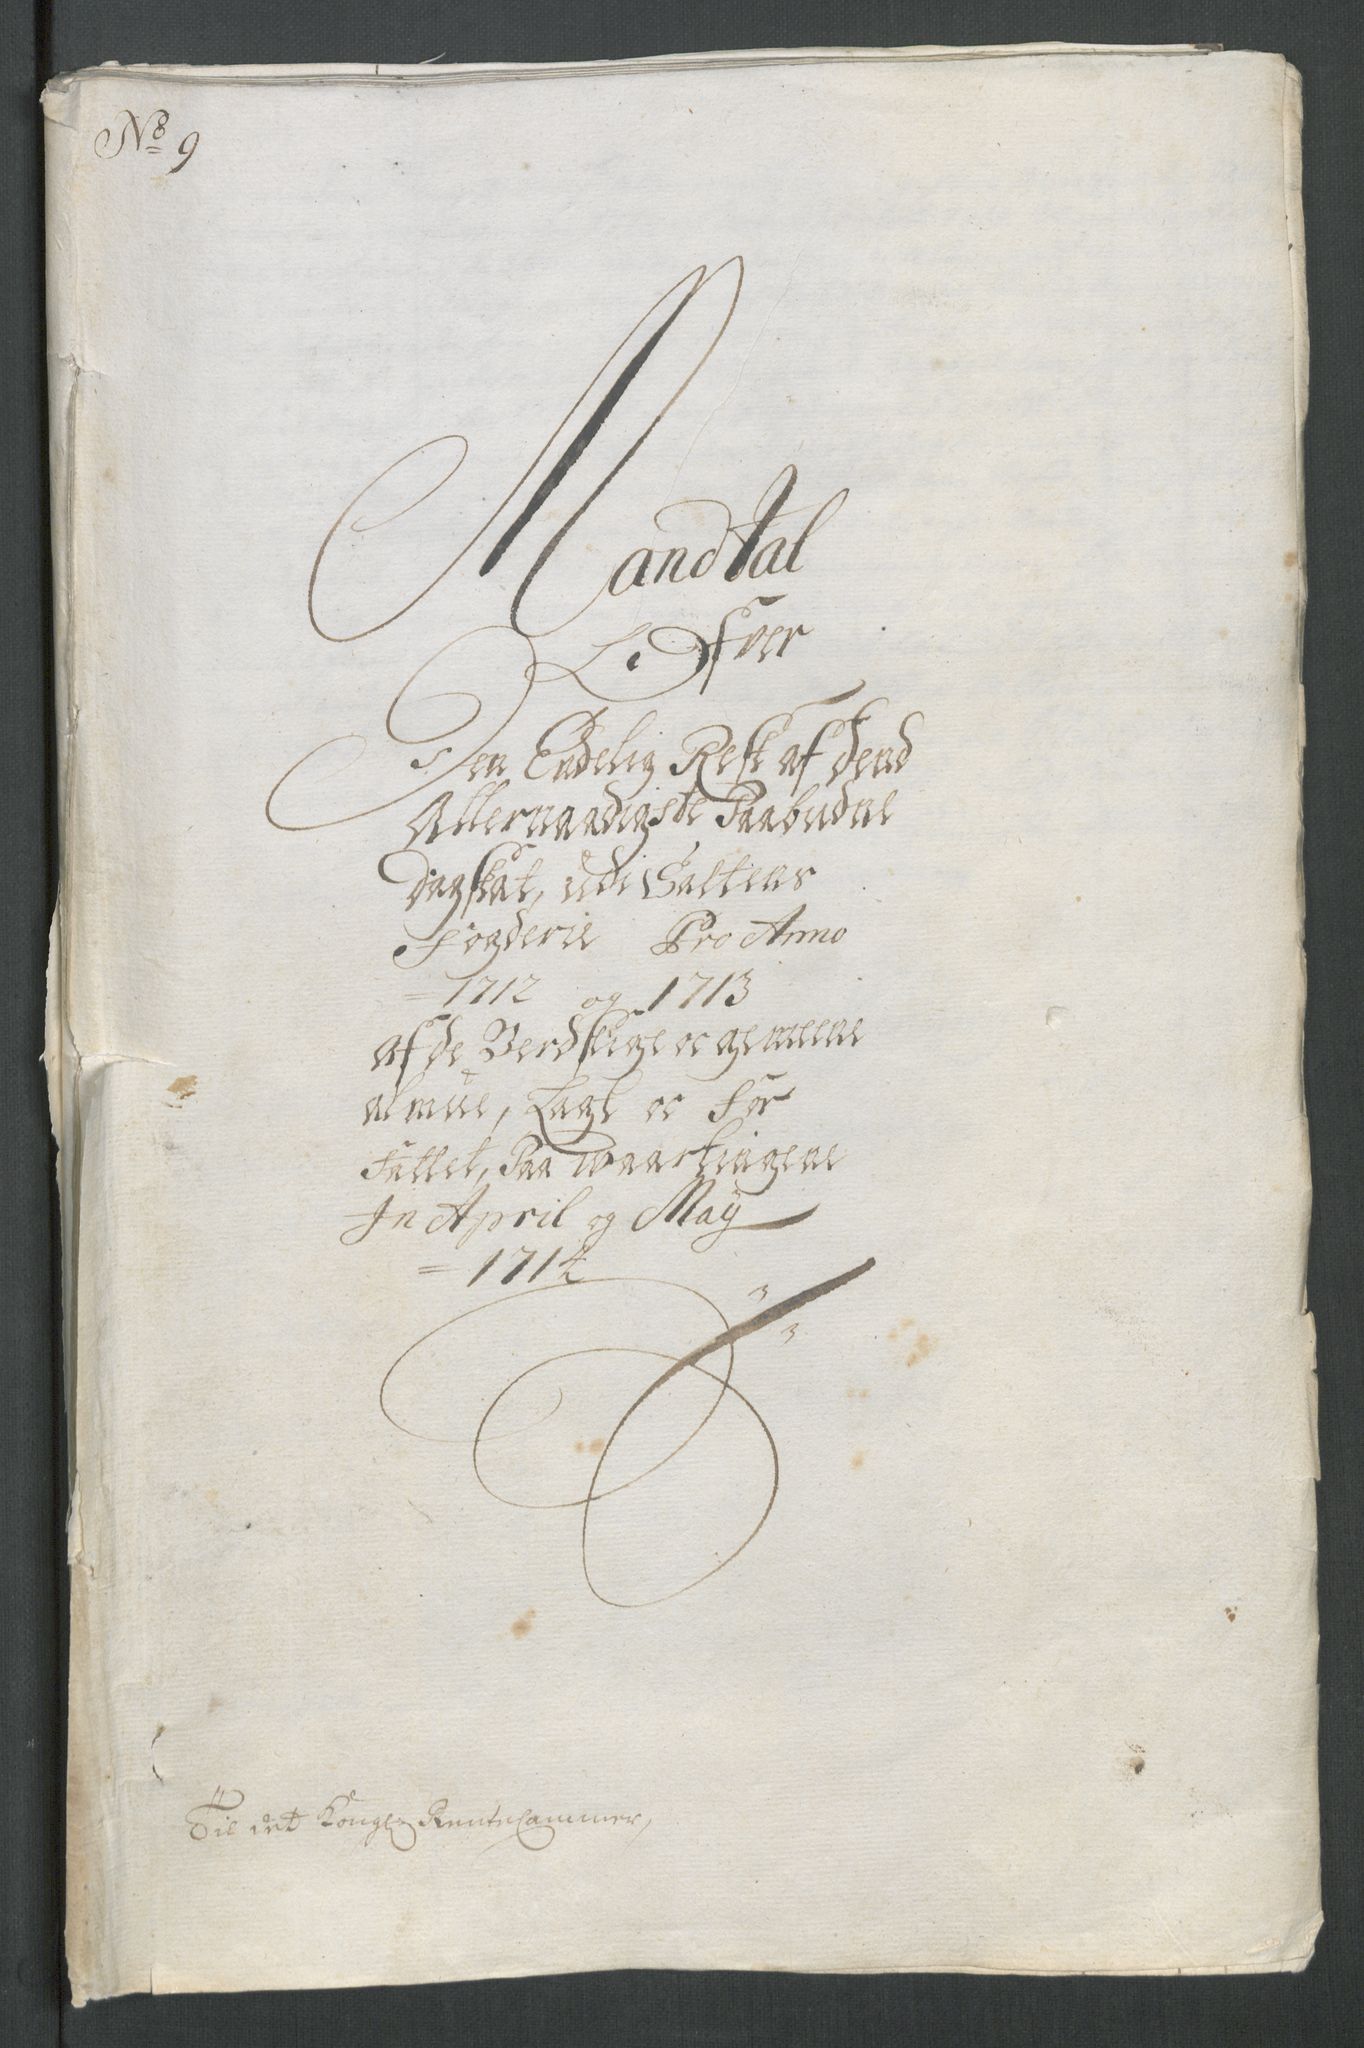 No 9
Mandtal
Ofver
Den Endelig Rest af dend
Allernaadigste Paabudne
dagskat, udi Saltens
Fogderie Pro Anno
1712 og 1713
af de Verdslige oc gemeene
almue, Lagt oc For
fattet, Paa Waartingene
In April og May
1714
Til det Kongl: Rente Cammer,